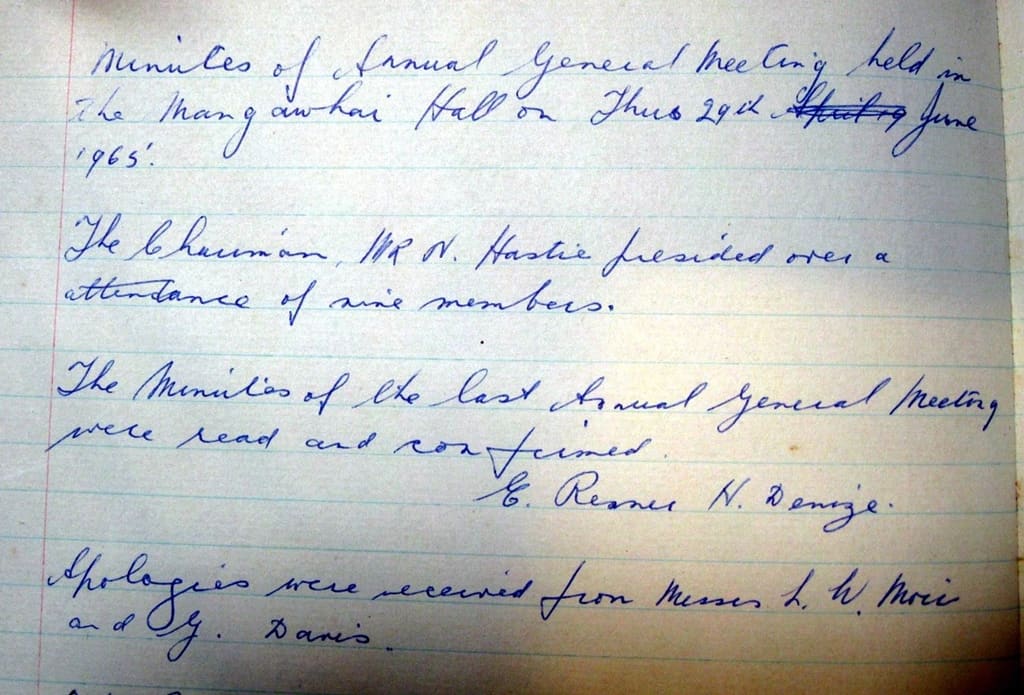 Minutes of Annual General Meeting held in
the Mangawhai Hall on Thus 29th April 19 June
1965.
The Chairman, MR N. Hastie presided over a
attendance of nine members.
The Minutes of the last Annual General Meeting
were read and confirmed.
E. H. Denize.
Apologies were received from Messrs L. W. Moir
and G. Davis.